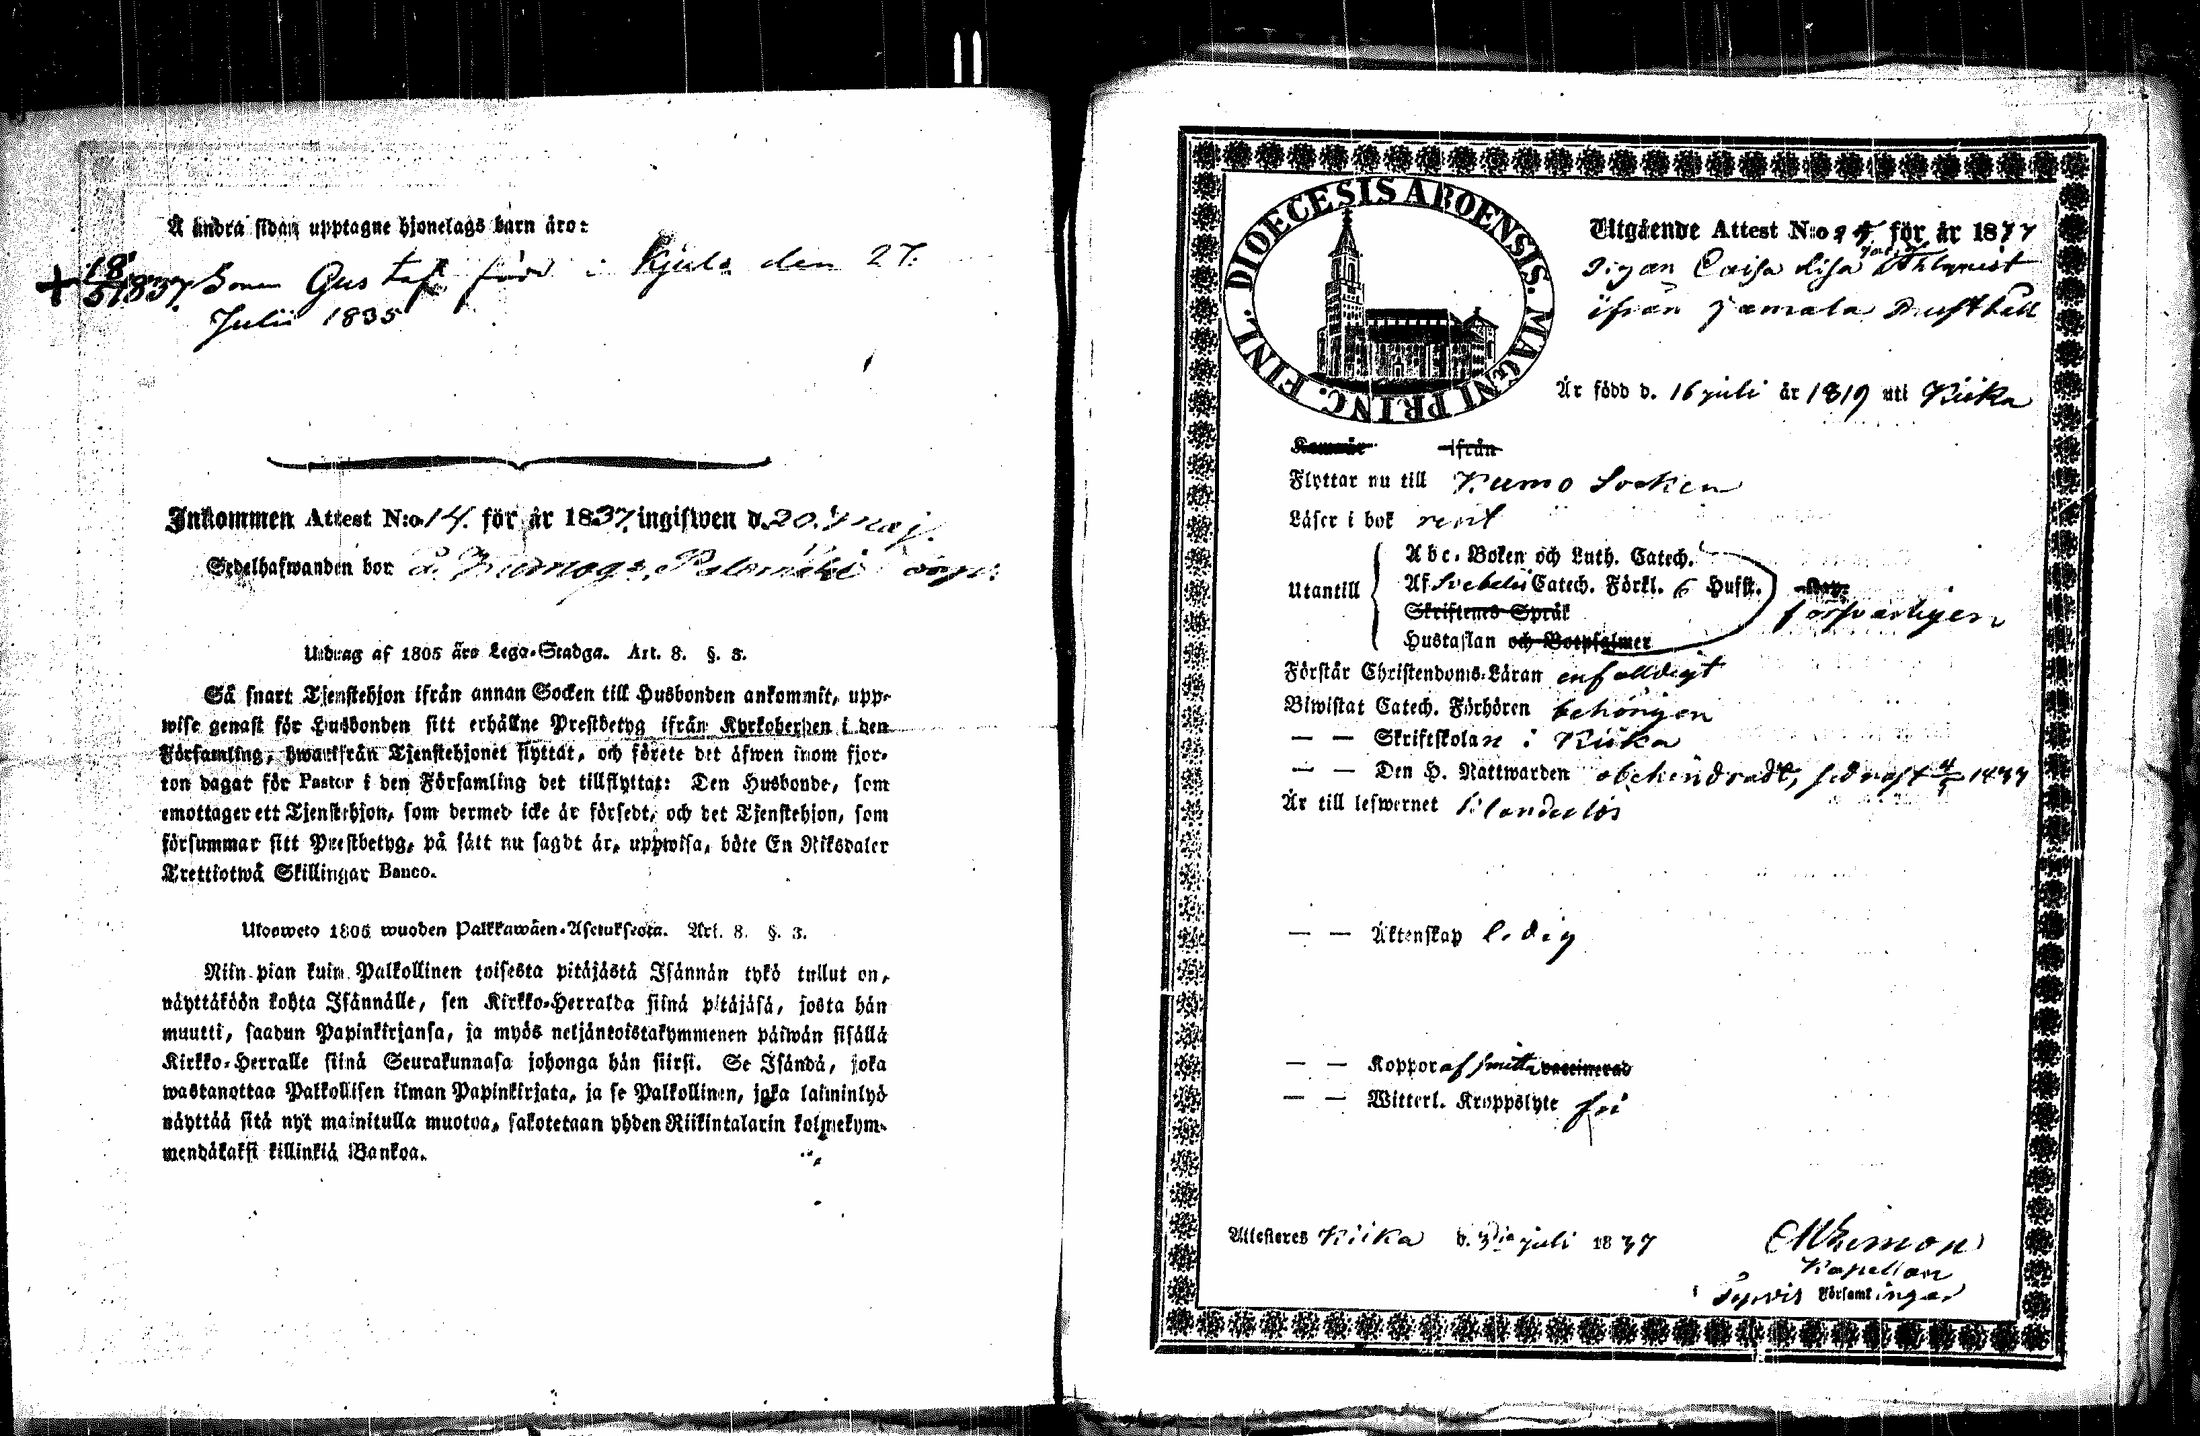 Å andra sidan upptagne hjonelags barn äro:
+ 18/5 1837. Sonen Gustaf född i Kjulo den 27.
Julii 1835
Inkommen Attest N:o 14. för år 1837. ingifwen d. 20. Maj.
Sedelhafwanden bor å
Utdrag af 1805 års Lego-Stadga. Art. 8. §. 3.
Så snart Tjenstehjon ifrån annan Socken till Husbonden ankommit, upp-
wise genast för Husbonden sitt erhållne Prestbetyg ifrån Kyrkoherden i den
Församling, hwarifrån Tjenstehjonet flyttat, och förete det äfwen inom fjor-
ton dagar för Pastor i den Församling det tillflyttat: Den Husbonde, som
emottager ett Tjenstehjon, som dermed icke är försedt, och det Tjenstehjon, som
försummar sitt Prestbetyg, på sätt nu sagdt är, uppwisa, böte En Riksdaler
Trettiotwå Skillingar Banco.
Ulosweto 1805 wuoden Palkkawäen-Asetuksesta. Art. 8. §. 3.
Niin pian kuin Palkollinen toisesta pitäjästä Isännän tykö tullut on,
näyttäköön kohta Isännälle, sen Kirkko-Herralda siinä pitäjäsä, josta hän
muutti, saadun Papinkirjansa, ja myös neljäntoistakymmenen päiwän sisällä
Kirkko-Herralle siinä Seurakunnasa johonga hän siirsi. Se Isändä, joka
wastanottaa Palkollisen ilman Papinkirjata, ja se Palkollinen, joka laiminlyö
näyttää sitä nyt mainitulla muotoa, sakotetaan yhden Riikintalarin kolmekym-
mendäkaksi killinkiä Bankoa.
DIOECESIS ABOENSIS. MAGNI PRINC. FINL.
Utgående Attest N:o 25 för år 1837
Pigan Caisa Lisa Ahlqvist
ifrån Jamala Rusthåll
Är född d. 16 juli år 1819 uti Kiika
Kommit ifrån
Flyttar nu till Kumo Socken
Läser i bok rent
Utantill
Abc-Boken och Luth. Catech.
Af Svebelii Catech. Förkl. 6 Hufst.
Skriftenes Språk
Hustaflan och Botpsalmer
försvarligen
Förstår Christendoms-Läran enfalldigt
Biwistat Catech. Förhören behörigen
— — Skriftskolan i Kiika
— — Den H. Nattwarden obehindradt, sednast 1837
Är till lefwernet klanderlös
— — Äktenskap ledig
— — Koppor af smitta vaccinerad
— — Witterl. Kroppslyte fri
Attesteres Kiika d. 3dje juli 1837
Kapellan
Tyrvis Församlingar